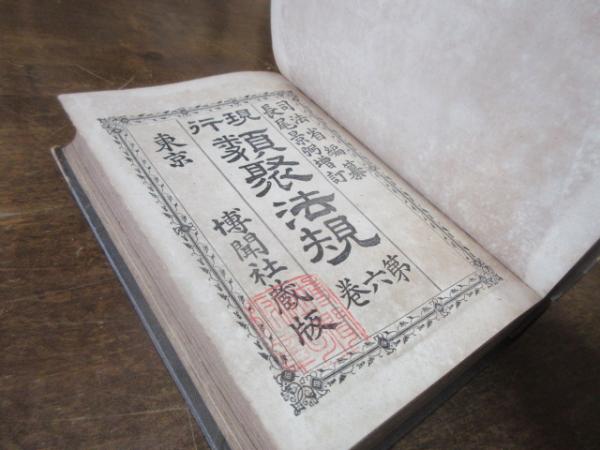 司法省編纂
長尾景弼増訂
現行
類聚法規
第六卷
東京
博聞社蔵版